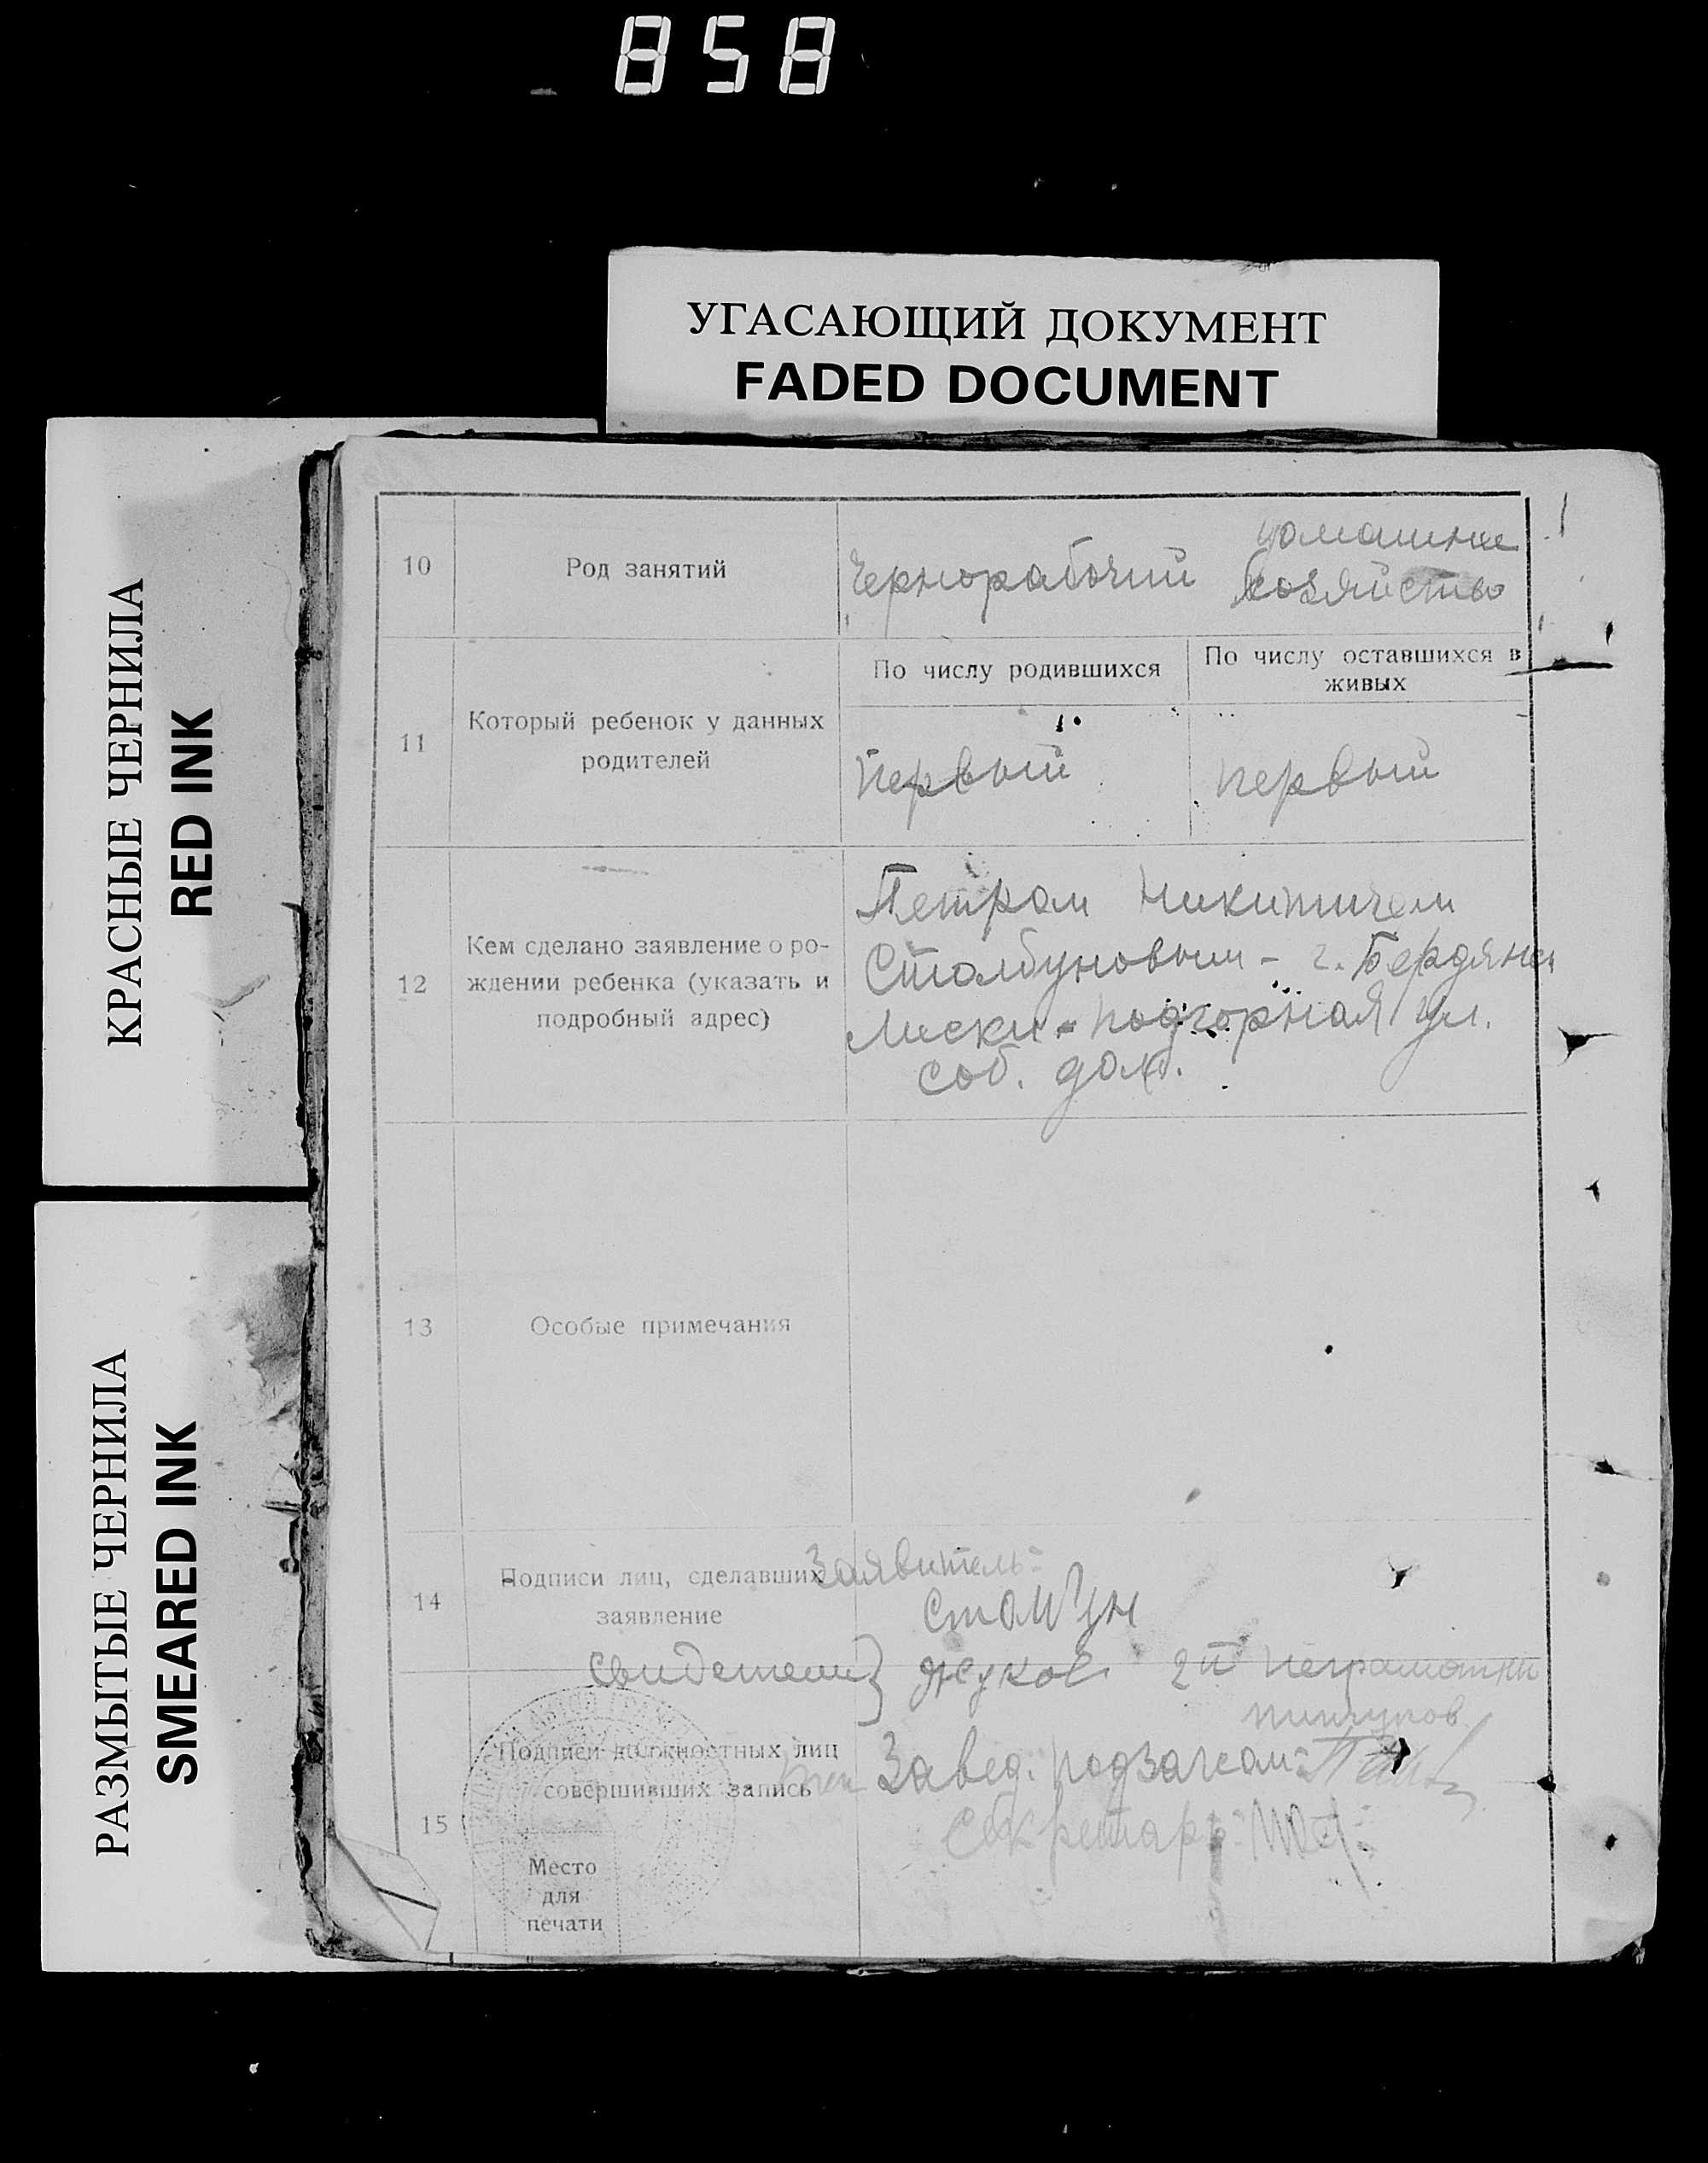 858
УГАСАЮЩИЙ ДОКУМЕНТ
FADED DOCUMENT
КРАСНЫЕ ЧЕРНИЛА
RED INK
РАЗМЫТЫЕ ЧЕРНИЛА
SMEARED INK
10
Род занятий
Чернорабочий
домашнее
хозяйство
11
Который ребенок у данных
родителей
По числу родившихся
По числу оставшихся в
живых
Первый
первый
12
Кем сделано заявление о ро-
ждении ребенка (указать и
подробный адрес)
Петром Никитичем
Столбуновым - г. Бердянск
Лиски - подгорная ул.
соб. дом.
13
Особые примечания
14
Подписи лиц, сделавших
заявление
Заявитель:
Свидетели} Жуков 2й неграмотн
15
Подписи должностных лиц
совершивших запись
Завед. подзагсом:
Секретарь:
Место
для
печати